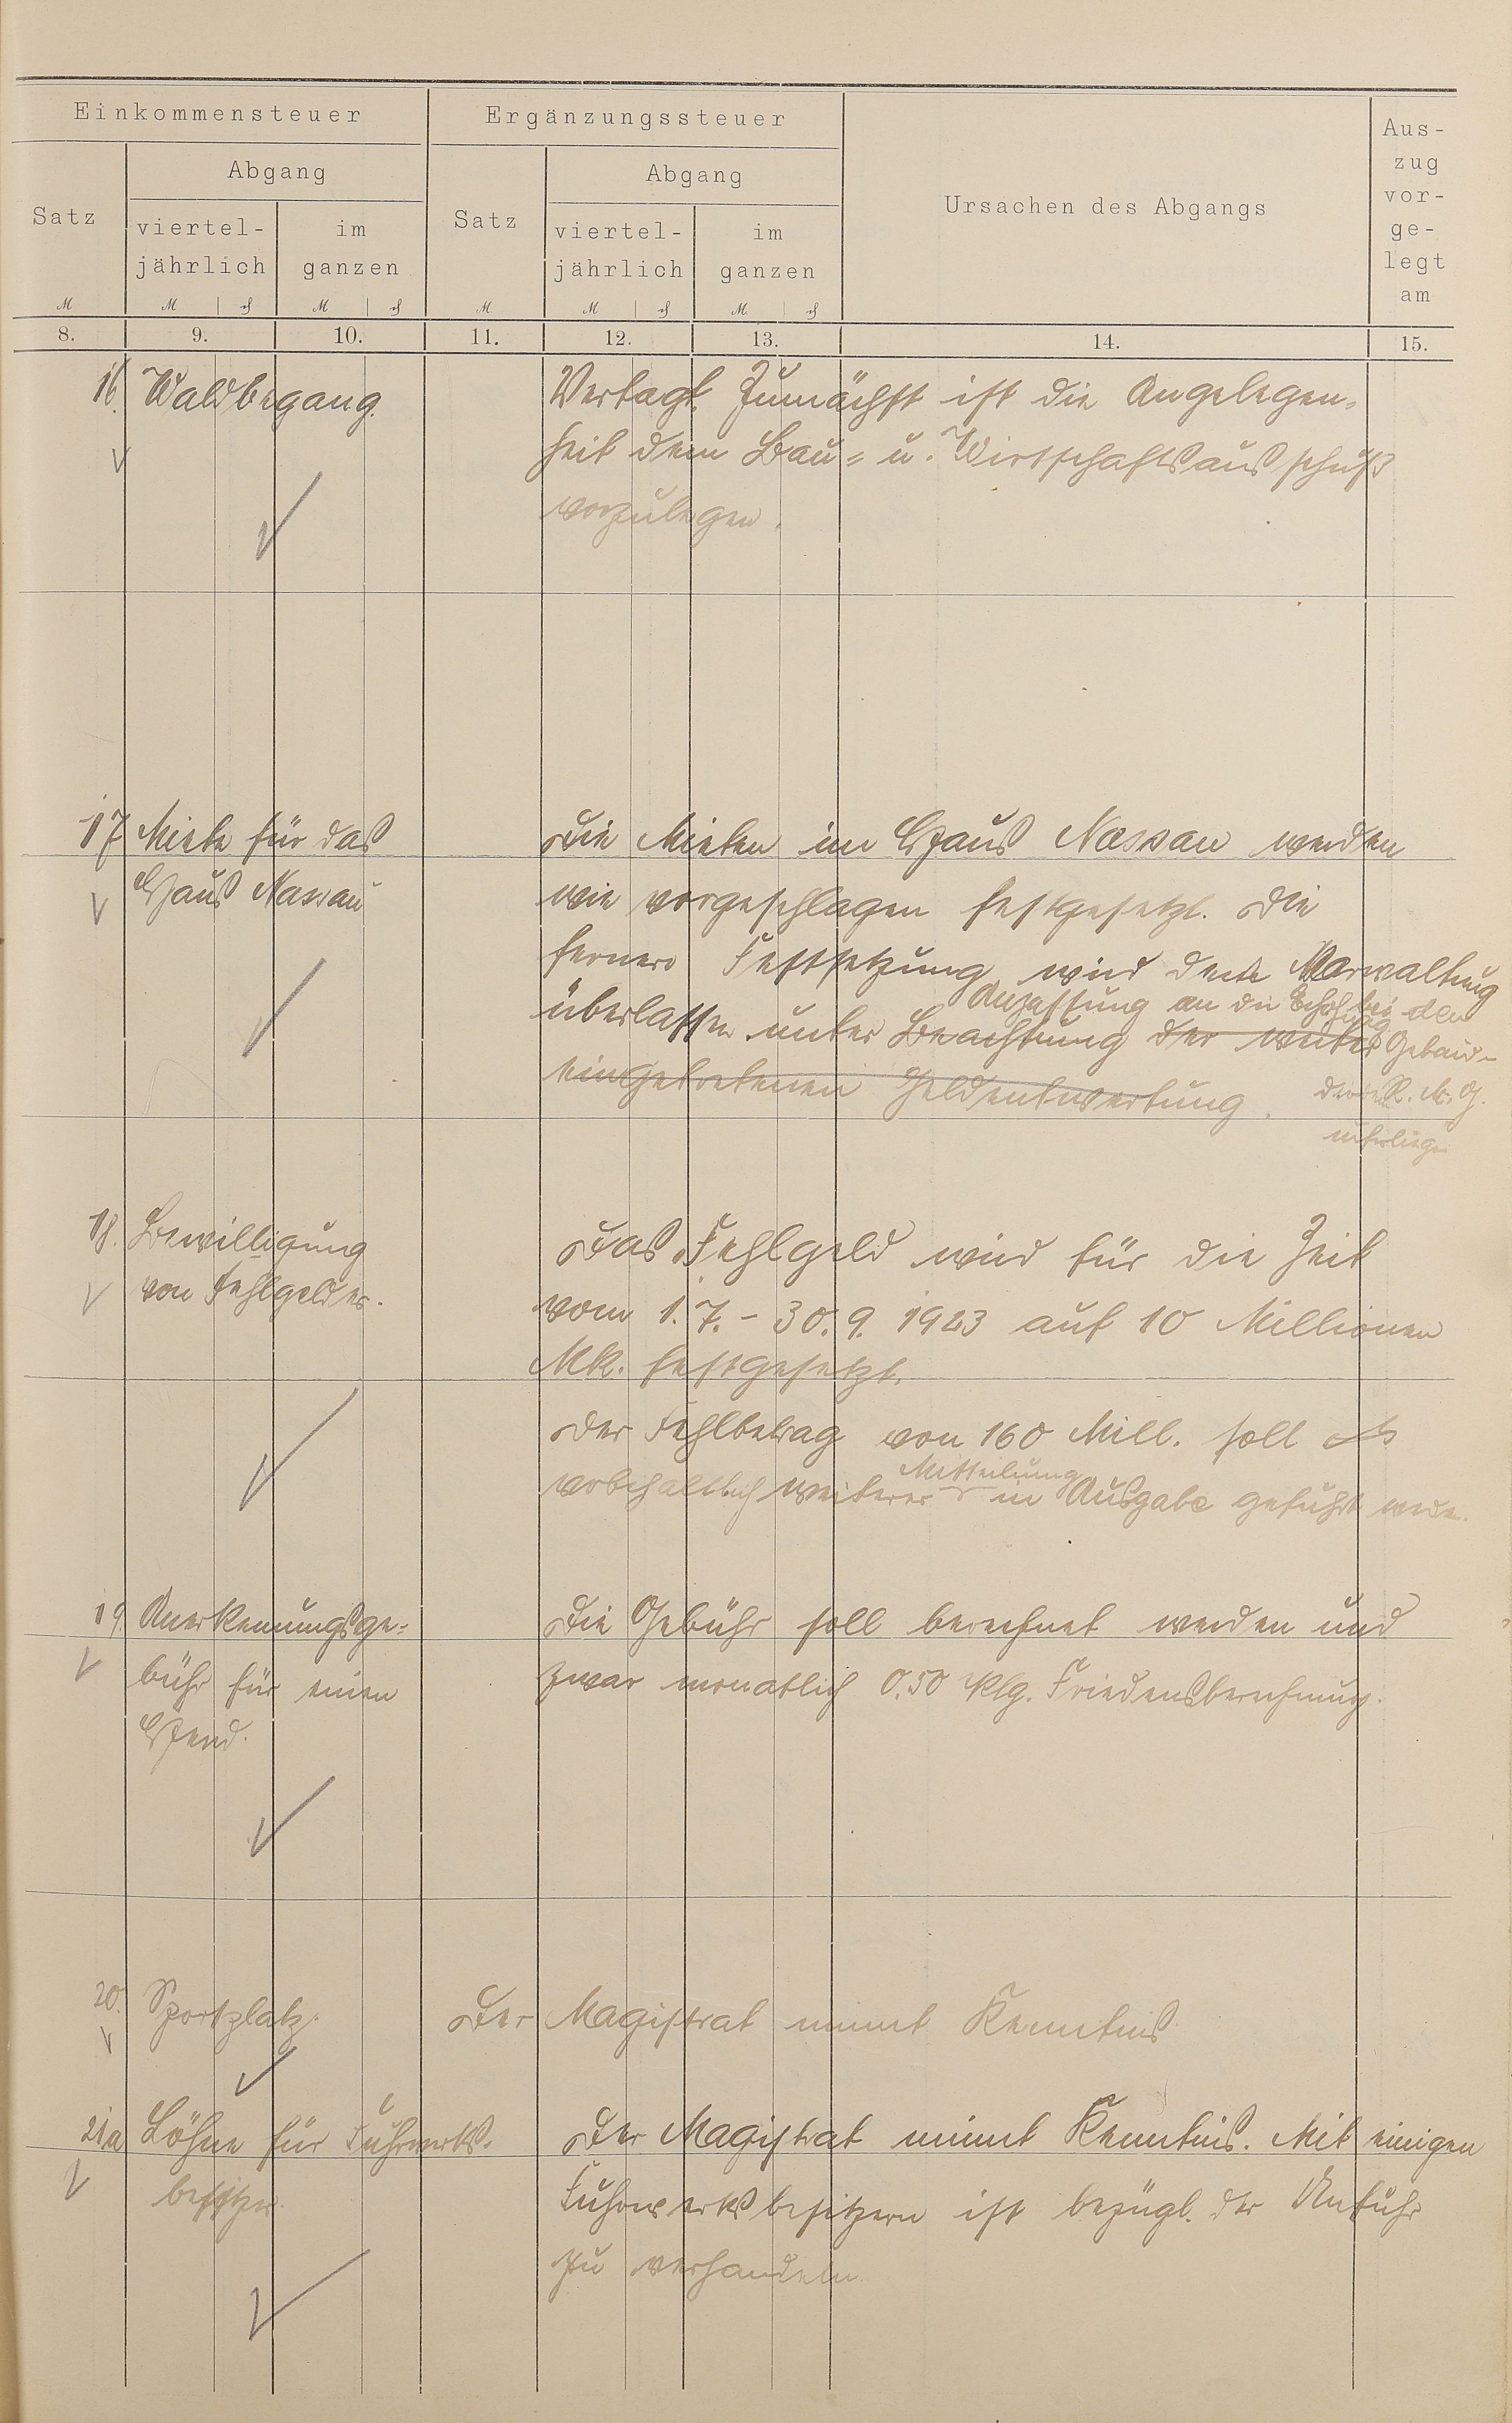 Einkommensteuer
Ergänzungssteuer
Ursachen des Abgangs
Aus-
zug
vor-
ge-
legt
am
Satz
Abgang
viertel-
jährlich
im
ganzen
Satz
Abgang
viertel-
jährlich
im
ganzen
M
M
₰
M
₰
M
M
₰
M
₰
8.
9.
10.
11.
12.
13.
14.
15.
16. Waldbegang.
Vertagt. Zunächst ist die Angelegen-
heit dem Bau- u. Wirtschaftsausschuß
vorzulegen.
17 Miete für das
Haus Nassau
Die Mieten im Haus Nassau werden
wie vorgeschlagen festgesetzt. Die
fernere Festsetzung wird der Verwaltung
Anpassung an die bei den
überlassen unter Beachtung der weiter Gebäu-
eingetretenen Geldentwertung. R. M. G.
unterliegen
18. Bewilligung
von Fehlgelder.
Das Fehlgeld wird für die Zeit
vom 1. 7. - 30. 9. 1923 auf 10 Millionen
Mk. festgesetzt.
Der Fehlbetrag von 160 Mill. soll
Mitteilung
vorbehaltlich weiterer in Ausgabe geführt werden.
19. Anerkennungsge-
bühr für einen
Die Gebühr soll berechnet werden und
zwar monatlich 0.50 Pfg. Friedensberechnung.
20. Sportplatz.
Der Magistrat nimmt Kenntnis
21a Löhne für Fuhrwerks-
besitzer.
Der Magistrat nimmt Kenntnis. Mit einigen
Fuhrwerksbesitzern ist bezügl. der Anfuhr
zu verhandeln.